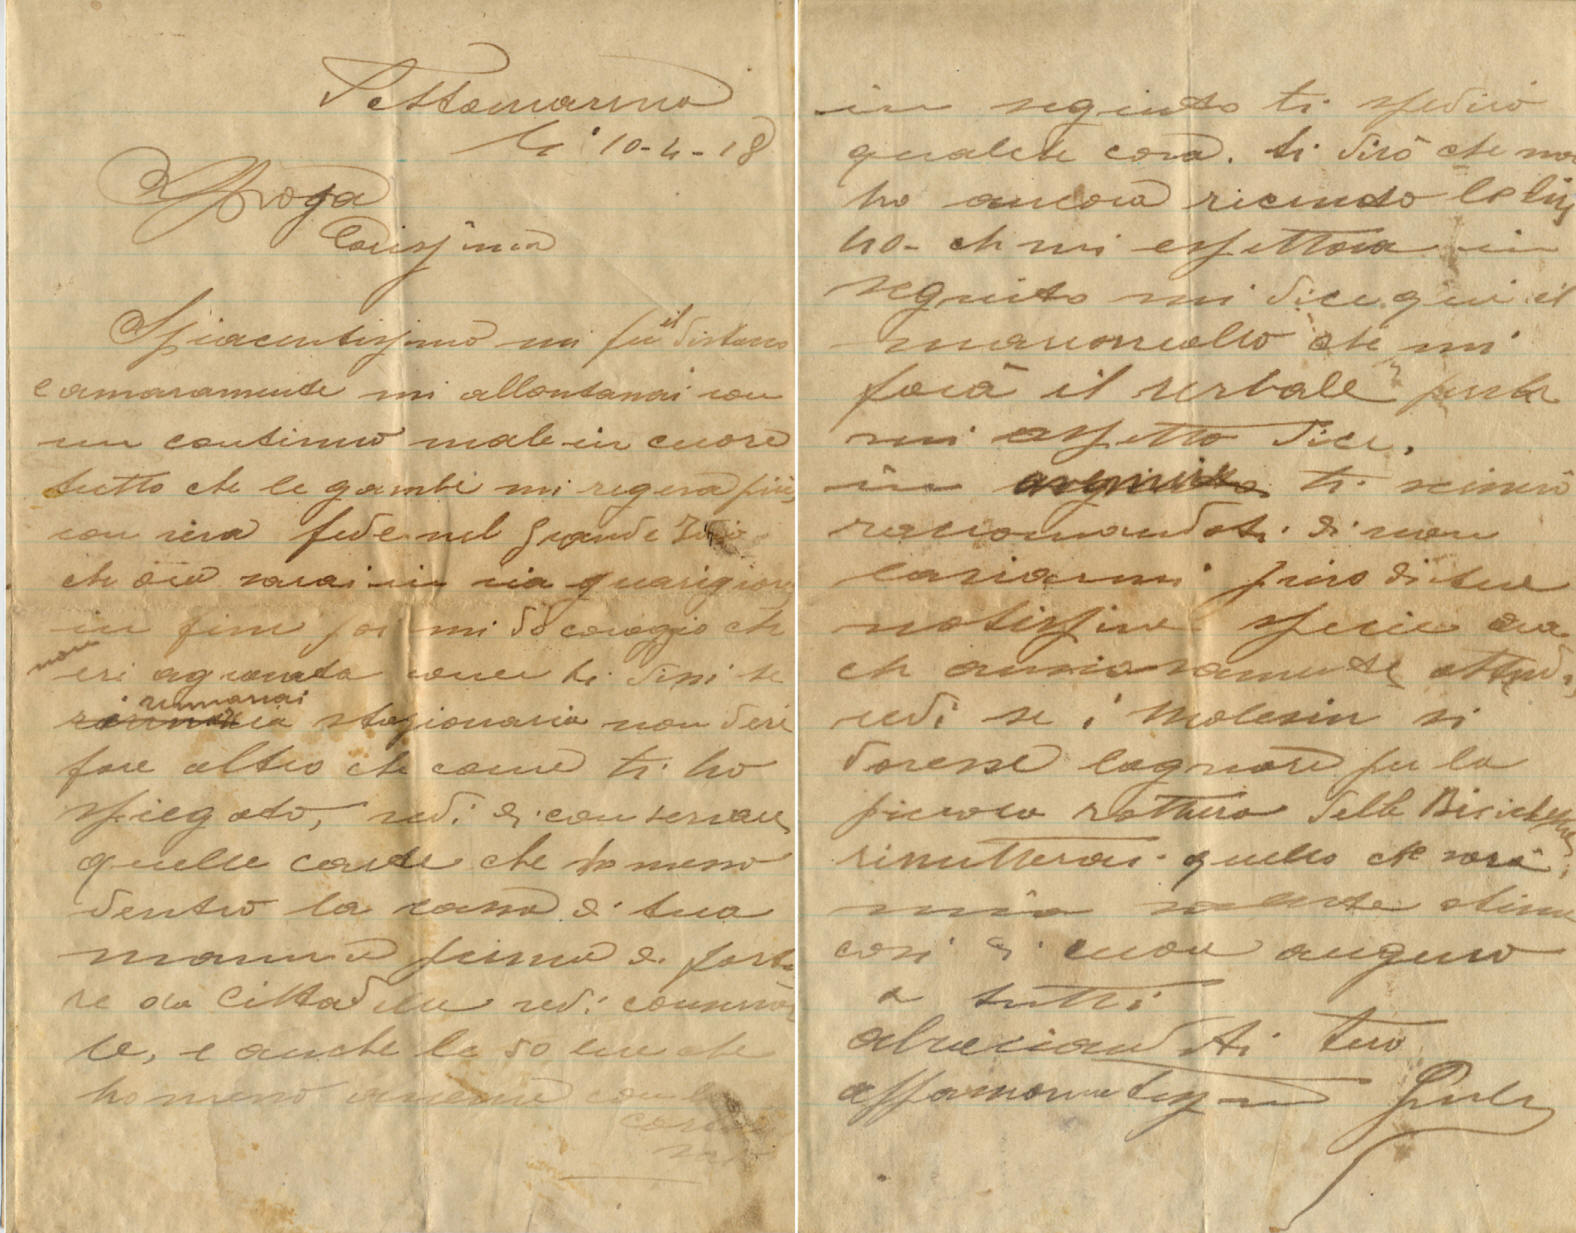 Settomarino
li 10-4-18
Sposa
Carissima
Spiacentissimo mi fu il distacco
e amaramente mi allontanai con
un continuo male in cuore
tutto che le gambe mi regeva più,
con viva fede nel Grande
che ora sarai in via guarigione
in fine poi mi do coragio che
non eri agravata come ti dissi se
rimarrai stazionaria non devi
fare altro che come ti ho
spiegato, vedi di conservare
quelle carte che ho messo
dentro la cassa di tua
mamma prima di
da Cittadella vedi
e anche le 50 lire che
ho messo insieme con le
in seguito ti spedirò
qualche cosa. ti dirò che non
ho ancora ricevuto
che mi aspettava in
seguito mi dice qui il
maresciallo che mi
farà il verbale
mi aspetto dice.
in ti scriverò
racomandoti di non
lasciarmi privo di tue
notissie specie ora
che ansiosamente attendo,
vedi se i Molesin si
dovesse lagnare per la
piccola rottura della Bicicletta
rimetterai quello che sarà,
così di cuore auguro
a tutti
abracciandoti tuo
affamonatissimo